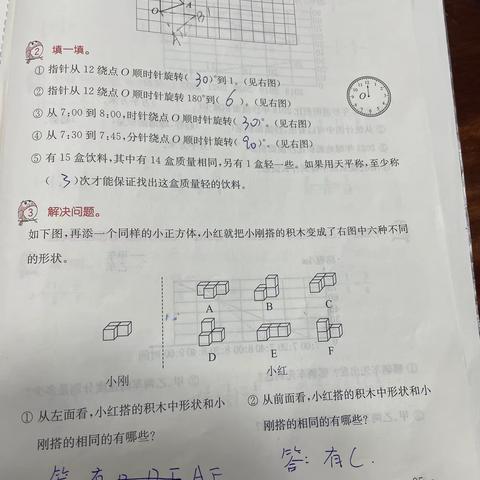 O A B
A
2 填一填。
① 指针从 12 绕点 O 顺时针旋转( 30 )°到 1。(见右图)
② 指针从 12 绕点 O 顺时针旋转 180°到( 6 )。(见右图)
③ 从 7:00 到 8:00,时针绕点 O 顺时针旋转( 30 )°。(见右图)
④ 从 7:30 到 7:45,分针绕点 O 顺时针旋转( 90 )°。(见右图)
⑤ 有 15 盒饮料,其中有 14 盒质量相同,另有 1 盒轻一些。如果用天平称,至少称
( 3 )次才能保证找出这盒质量轻的饮料。
3 解决问题。
如下图,再添一个同样的小正方体,小红就把小刚搭的积木变成了右图中六种不同
的形状。
A B C
D E F
小刚 小红
① 从左面看,小红搭的积木中形状和小
刚搭的相同的有哪些?
② 从前面看,小红搭的积木中形状和小
刚搭的相同的有哪些?
答:有C.